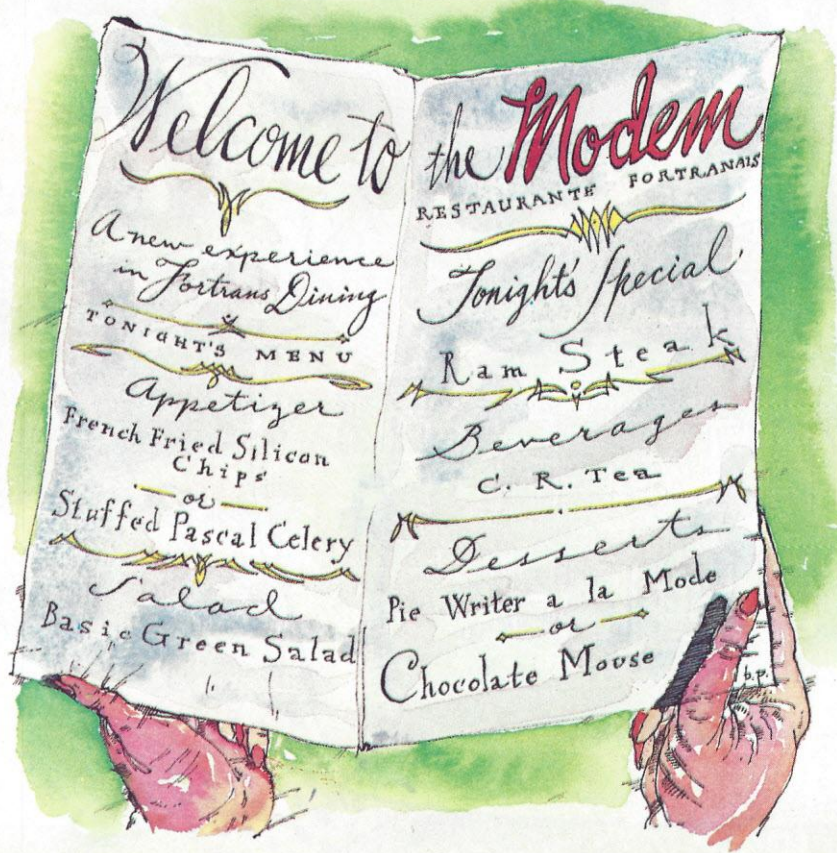 Welcome to
A new experience
in Fortrans Dining
TONIGHT'S MENU
Appetizer
French Fried Silicon
Chips
or
Stuffed Pascal Celery
Salad
Basic Green Salad
the Modem
RESTAURANTE FORTRANAIS
Tonight's Special
Ram Steak
Beverages
C. R. Tea
Desserts
Pie Writer a la Mode
or
Chocolate Mouse
b.p.